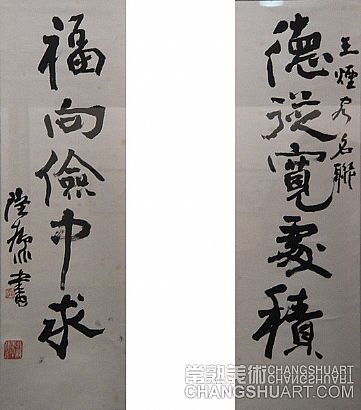 王煙客名聯
德從寬處積
福向儉中求
陸 書
常熟美術 CHANGSHUART
CHANGSHUART.COM